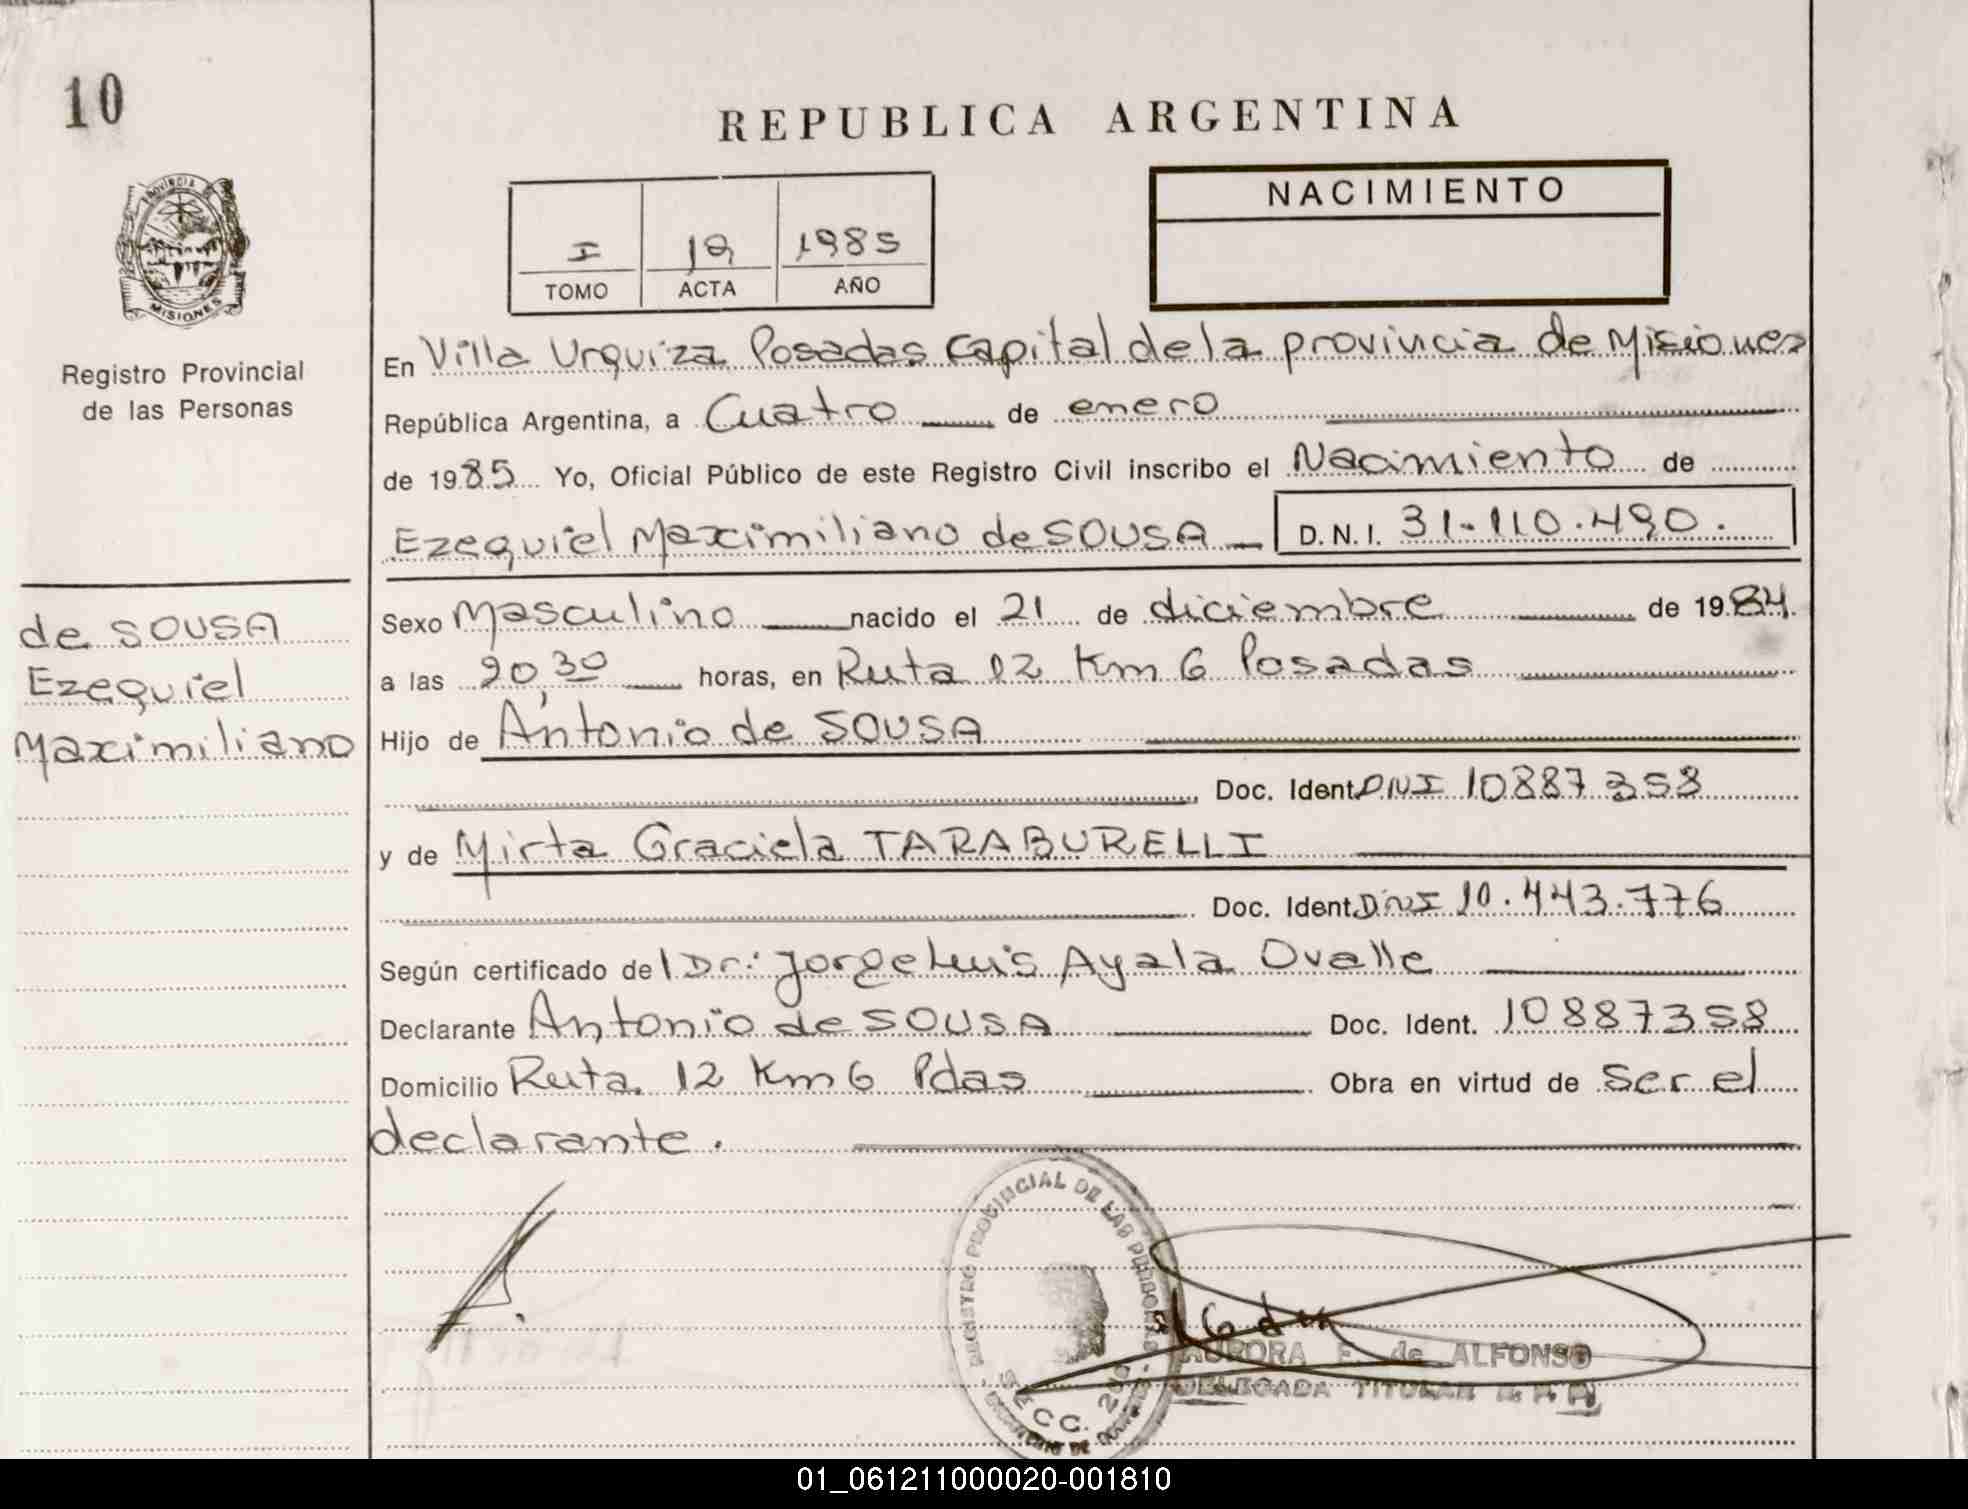 10
REPUBLICA ARGENTINA
PROVINCIA
MISIONES
NACIMIENTO
I 19 1985
TOMO ACTA AÑO
Registro Provincial
de las Personas
En Villa Urquiza Posadas Capital de la provincia de Misiones
República Argentina, a Cuatro de enero
de 1985 Yo, Oficial Público de este Registro Civil inscribo el Nacimiento de
Ezequiel Maximiliano de SOUSA D.N.I. 31.110.490.
de SOUSA
Ezequiel
Maximiliano
Sexo Masculino nacido el 21 de diciembre de 1984.
a las 20,30 horas, en Ruta 12 Km 6 Posadas
Hijo de Antonio de SOUSA
Doc. Ident. DNI 10887358
y de Mirta Graciela TARABURELLI
Doc. Ident. DNI 10.443.776
Según certificado del Dr: Jorge Luis Ayala Ovelle
Declarante Antonio de SOUSA Doc. Ident. 10887358
Domicilio Ruta 12 Km 6 Pdas Obra en virtud de Ser el
declarante.
REGISTRO PROVINCIAL DE LAS PERSONAS
SECC.
AURORA E. de ALFONSO
DELEGADA TITULAR R. P. P.
01_061211000020-001810